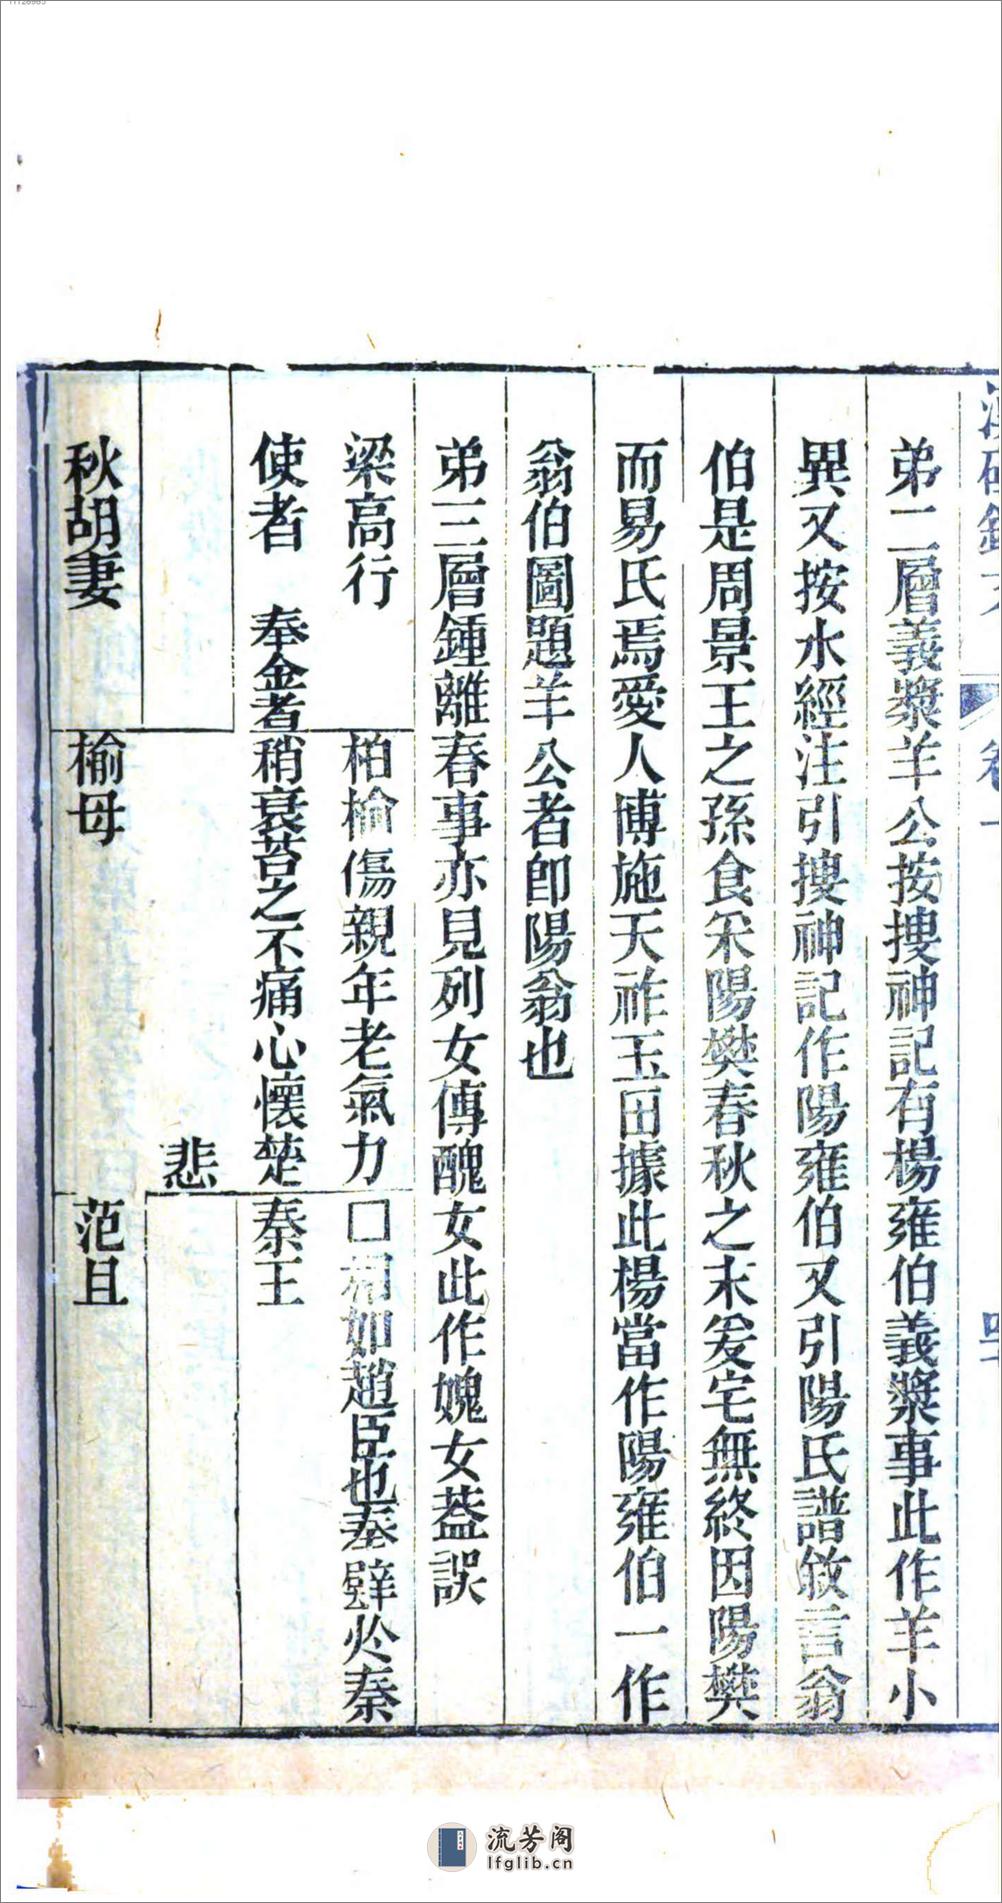 弟二層義漿羊公按搜神記有楊雍伯義漿事此作羊小
異又按水經注引搜神記作陽雍伯又引陽氏譜敘言翁
伯是周景王之孫食采陽樊春秋之末爰宅無終因陽樊
而易氏焉愛人博施天祚玉田據此楊當作陽雍伯一作
翁伯圖題羊公者卽陽翁也
弟三層鍾離春事亦見列女傳醜女此作媿女蓋誤
梁高行
使者 奉金者
秋胡妻
柏榆傷親年老氣力
稍衰笞之不痛心懷楚
悲
榆母
□相如趙臣也奉璧於秦
秦王
范且
流芳阁
lfglib.cn